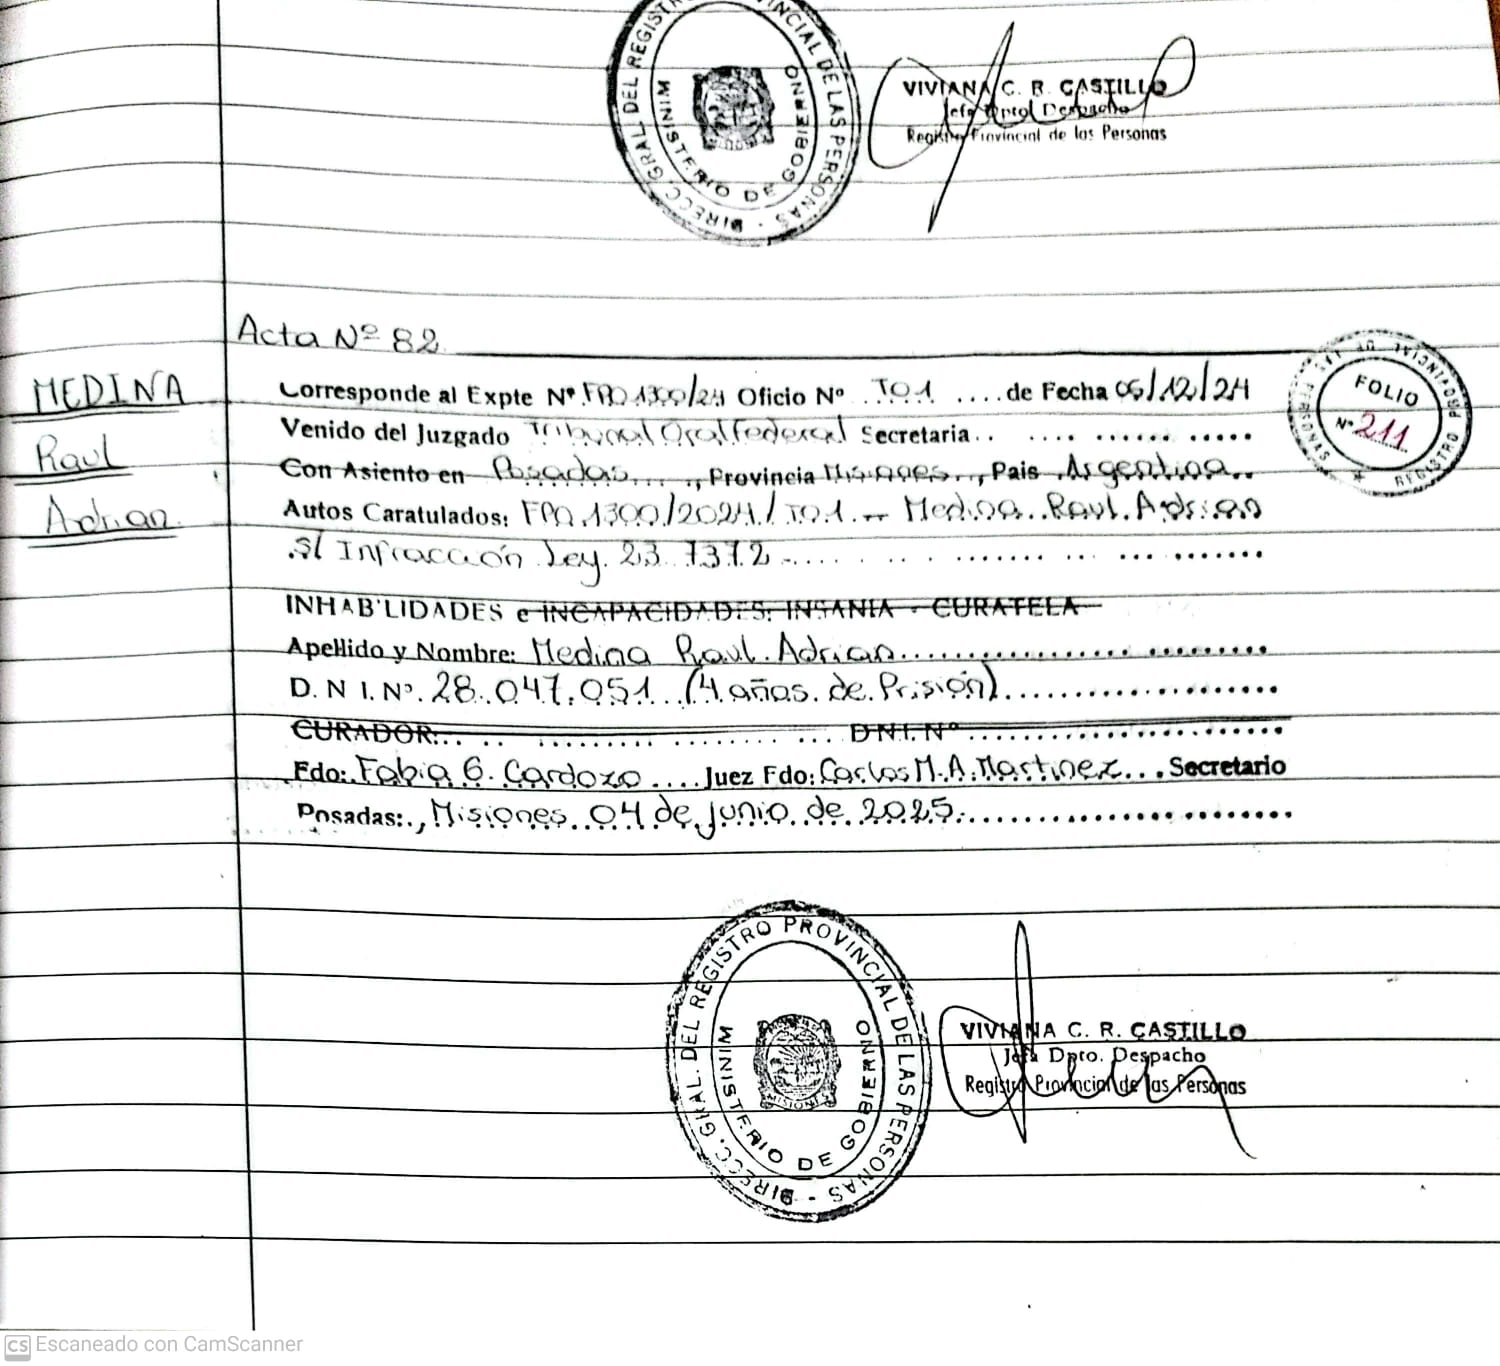 DIRECC. GRAL. DEL REGISTRO PROVINCIAL DE LAS PERSONAS -
MINISTERIO DE GOBIERNO
VIVIANA C. R. CASTILLO
Jefa Dpto. Despacho
Registro Provincial de las Personas
Acta Nº 82
REGISTRO PROVINCIAL DE LAS PERSONAS
FOLIO
Nº 211
MEDINA
Raul
Adrian
Corresponde al Expte Nº FPO 1300/24 Oficio Nº TO1 .... de Fecha 05/12/24
Venido del Juzgado Tribunal Oral Federal Secretaria.. .... ...... .....
Con Asiento en Posadas...., Provincia Misiones.., Pais .Argentina..
Autos Caratulados: FPO.1300/2024/TO1.- Medina..Raul.Adrian
.S/ Infracción Ley. 23.737.2
INHABILIDADES e INCAPACIDADES: INSANIA - CURATELA
Apellido y Nombre: Medina Raul.Adrian
D. N I. Nº. 28.047.051..(4.años.de.Prisión)
CURADOR:.. .. ......... ........ .... D.N.I. Nº
Fdo:.Fabia G. Cardozo ....Juez Fdo: Carlos M.A.Martinez...Secretario
Posadas:.,Misiones..04 de.junio.de.2025
DIRECC. GRAL. DEL REGISTRO PROVINCIAL DE LAS PERSONAS -
MINISTERIO DE GOBIERNO
MISIONES
VIVIANA C. R. CASTILLO
Jefa Dpto. Despacho
Registro Provincial de las Personas
CS Escaneado con CamScanner